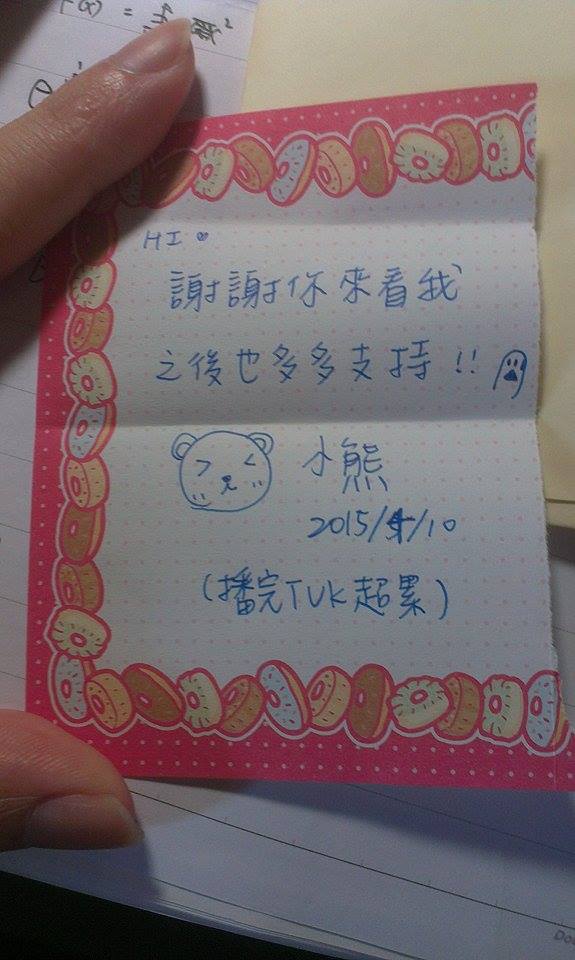 HI
謝謝你來看我
之後也多多支持!!
小熊
2015/4/10
(播完TUK超累)